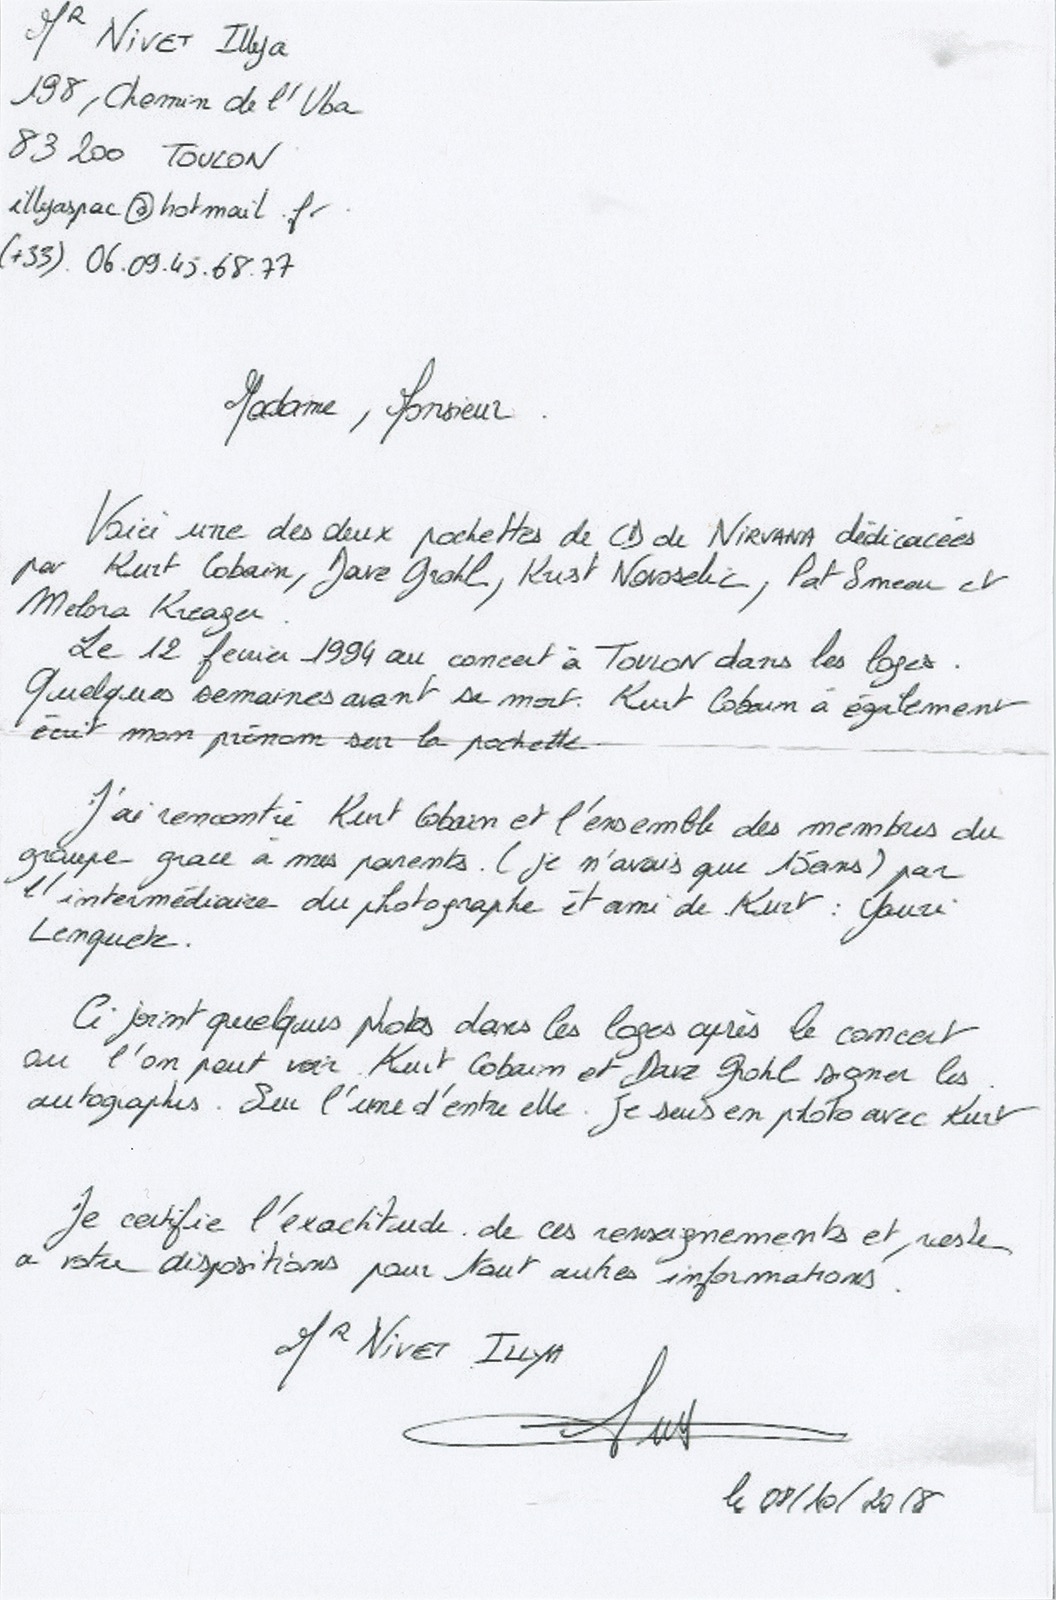 Mr Nivet Illya
198, Chemin de l'Uba
83 200 TOULON
illyaspac@hotmail.fr
(+33). 06.09.45.68.77
Madame, Monsieur.
Voici une des deux pochettes de CD de NIRVANA dédicacées
par Kurt Cobain, Dave Grohl, Krist Novoselic, Pat Smear et
Melora Kreager.
Le 12 fevrier 1994 au concert à TOULON dans les loges.
Quelques semaines avant sa mort. Kurt Cobain à également
écrit mon prénom sur la pochette
J'ai rencontré Kurt Cobain et l'ensemble des membres du
groupe grace à mes parents. (je n'avais que 15ans) par
l'intermédiaire du photographe et ami de Kurt : Youri
Lenquette.
Ci joint quelques photos dans les loges après le concert
ou l'on peut voir Kurt Cobain et Dave Grohl signer les
autographes. Sur l'une d'entre elle. Je suis en photo avec Kurt
Je certifie l'exactitude de ces renseignements et reste
a votre dispositions pour tout autres informations.
Mr NIVET ILLYA
le 08/10/2018